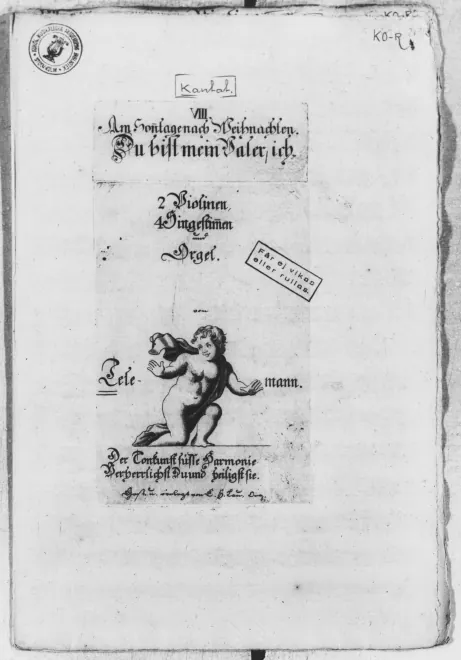 KO-R
Kantat.
VIII.
Am Sontage nach Weihnachten.
Du bist mein Vater, ich.
2 Violinen
4 Singestimen
und
Orgel.
Får ej vikas
eller rullas.
von
Tele-
mann.
Der Tonkunst süsse Harmonie
Verherrlichst Du und heiligst sie.